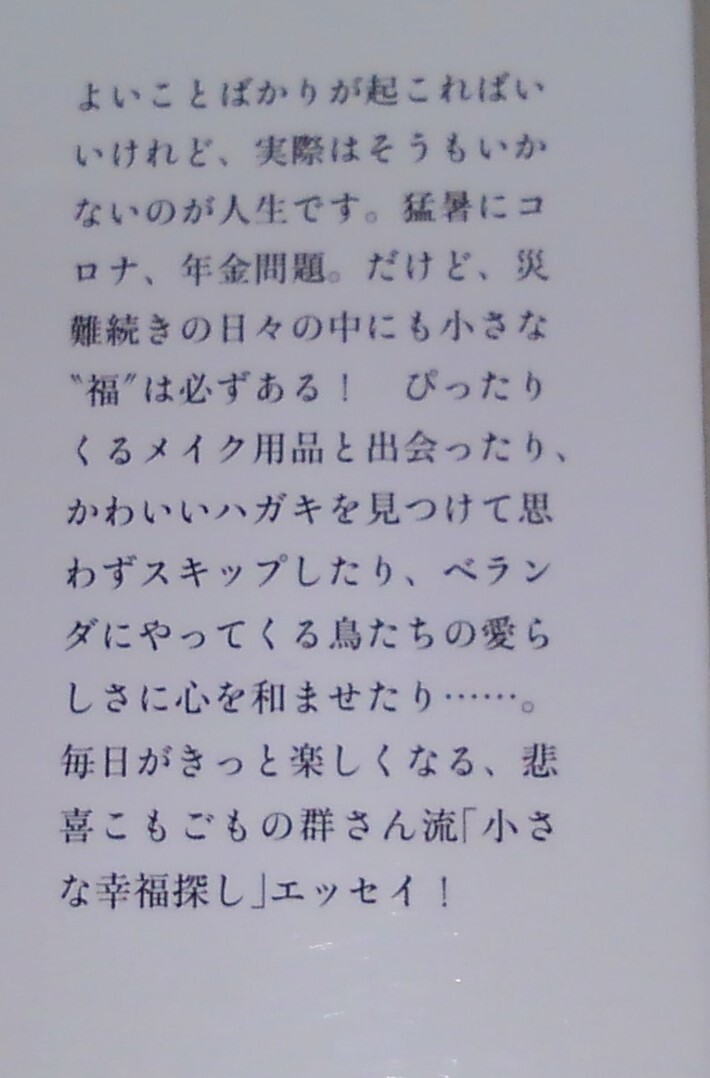 よいことばかりが起こればい
いけれど、実際はそうもいか
ないのが人生です。猛暑にコ
ロナ、年金問題。だけど、災
難続きの日々の中にも小さな
〝福〟は必ずある！　ぴったり
くるメイク用品と出会ったり、
かわいいハガキを見つけて思
わずスキップしたり、ベラン
ダにやってくる鳥たちの愛ら
しさに心を和ませたり……。
毎日がきっと楽しくなる、悲
喜こもごもの群さん流「小さ
な幸福探し」エッセイ！